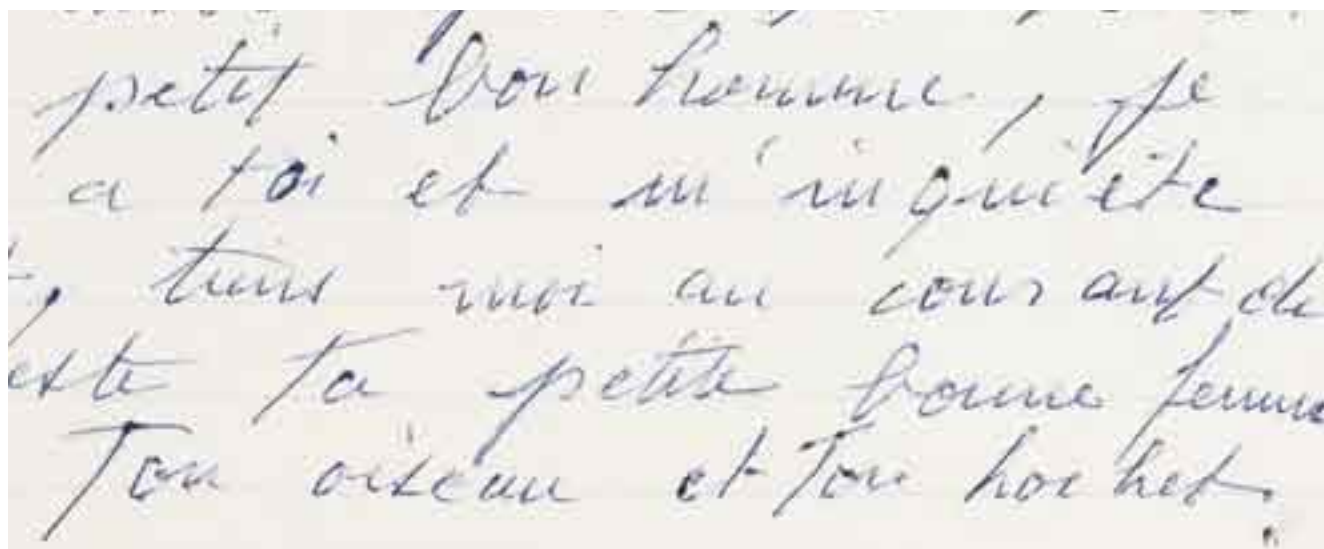 petit bon homme, je
a toi et m'inquiète
tiens moi au courant de
este ta petite bonne femme
Ton oiseau et Ton hochet.